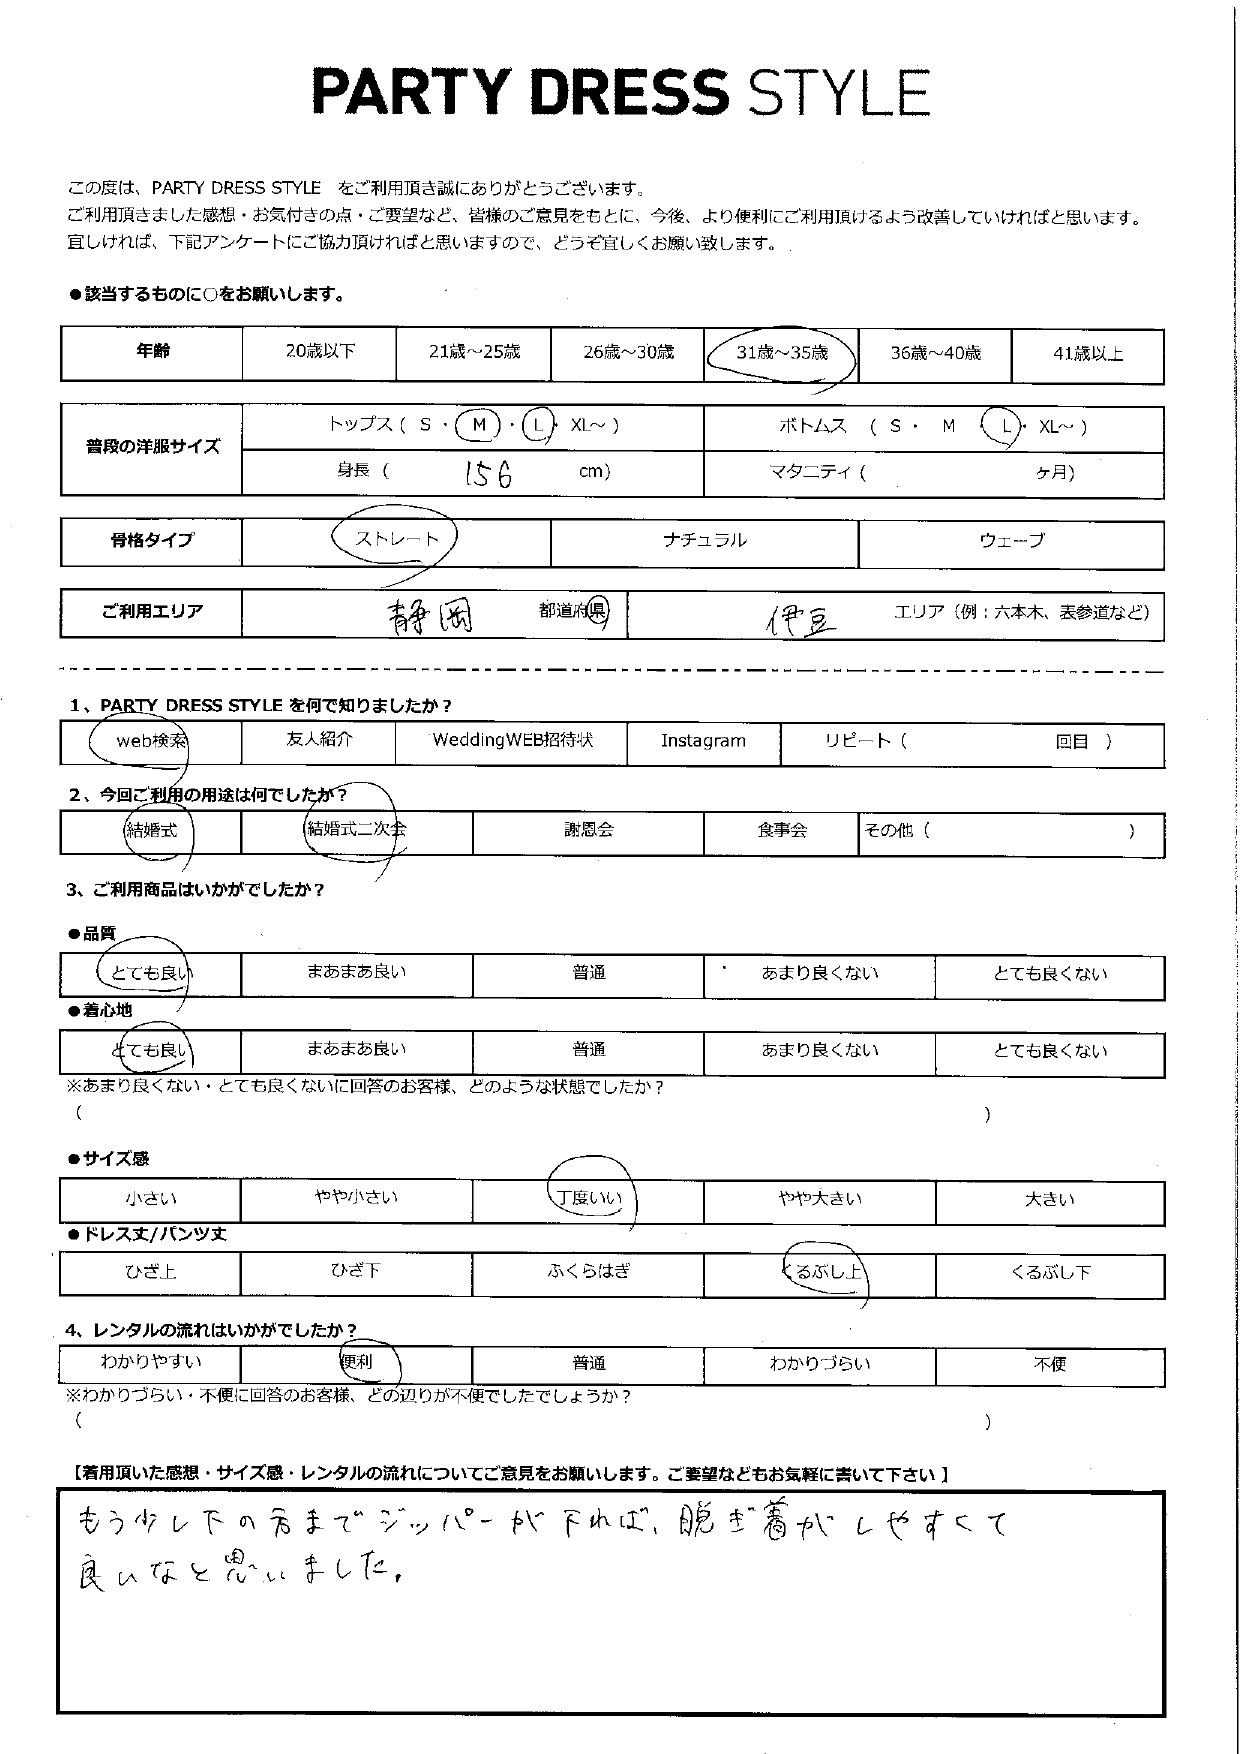 PARTY DRESS STYLE
この度は、PARTY DRESS STYLE をご利用頂き誠にありがとうございます。
ご利用頂きました感想・お気付きの点・ご要望など、皆様のご意見をもとに、今後、より便利にご利用頂けるよう改善していければと思います。
宜しければ、下記アンケートにご協力頂ければと思いますので、どうぞ宜しくお願い致します。
●該当するものに○をお願いします。
年齢 20歳以下 21歳～25歳 26歳～30歳 31歳～35歳 36歳～40歳 41歳以上
普段の洋服サイズ
トップス ( S ・ M ・ L ・ XL～ ) ボトムス ( S ・ M L ・ XL～ )
身長 ( 156 cm) マタニティ ( ヶ月)
骨格タイプ ストレート ナチュラル ウェーブ
ご利用エリア 静岡 都道府県 伊豆 エリア（例：六本木、表参道など）
1、PARTY DRESS STYLE を何で知りましたか？
web検索 友人紹介 WeddingWEB招待状 Instagram リピート ( 回目 )
2、今回ご利用の用途は何でしたか？
結婚式 結婚式二次会 謝恩会 食事会 その他 ( )
3、ご利用商品はいかがでしたか？
●品質
とても良い まあまあ良い 普通 あまり良くない とても良くない
●着心地
とても良い まあまあ良い 普通 あまり良くない とても良くない
※あまり良くない・とても良くないに回答のお客様、どのような状態でしたか？
( )
●サイズ感
小さい やや小さい 丁度いい やや大きい 大きい
●ドレス丈/パンツ丈
ひざ上 ひざ下 ふくらはぎ くるぶし上 くるぶし下
4、レンタルの流れはいかがでしたか？
わかりやすい 便利 普通 わかりづらい 不便
※わかりづらい・不便に回答のお客様、どの辺りが不便でしたでしょうか？
( )
【着用頂いた感想・サイズ感・レンタルの流れについてご意見をお願いします。ご要望などもお気軽に書いて下さい】
もう少し下の方までジッパーが下れば、脱ぎ着がしやすくて
良いなと思いました。